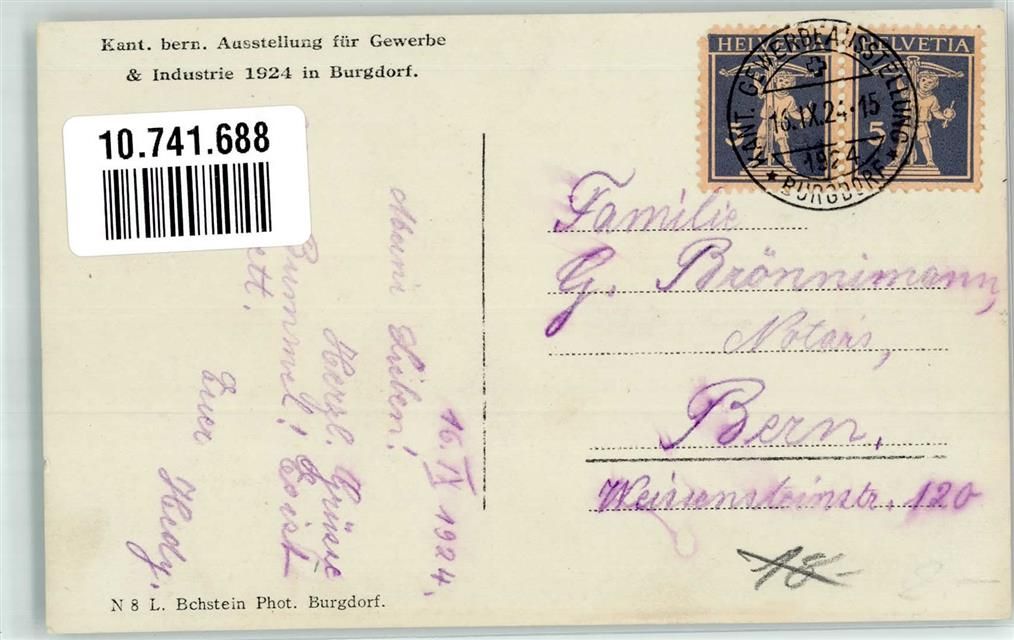 Kant. bern. Ausstellung für Gewerbe
& Industrie 1924 in Burgdorf.
10.741.688
HELVETIA HELVETIA
5 5
KANT. GEWERBEAUSSTELLUNG
16.IX.24-15
1924
* BURGDORF *
16. IX 1924.
Meine Lieben!
Herzl. Grüsse
Bummel! Es ist
ett.
Euer Hedy.
Familie
G. Brönnimann,
Notars,
Bern,
Weissensteinstr. 120
18-
8-
N 8 L. Bchstein Phot. Burgdorf.